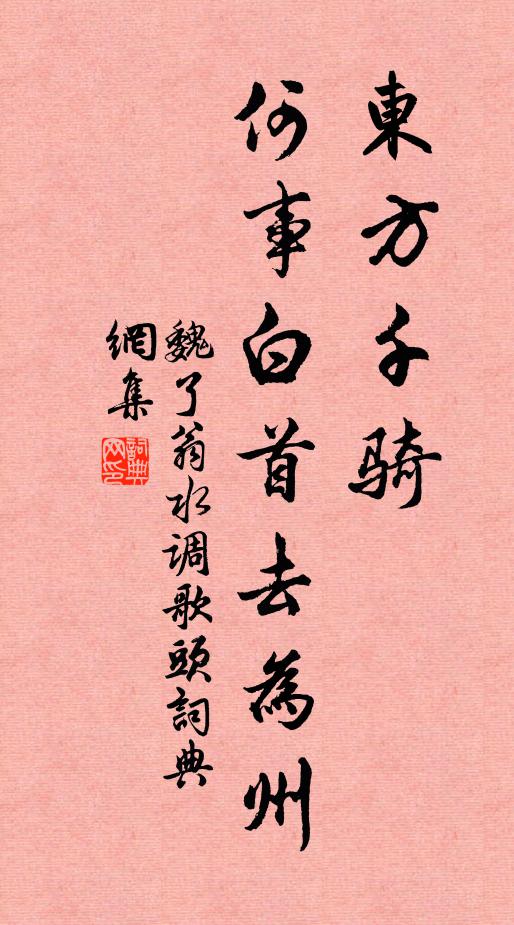 東方千骑
何事白首去為州
魏了翁水调歌頭詞典
網集
詞典网印